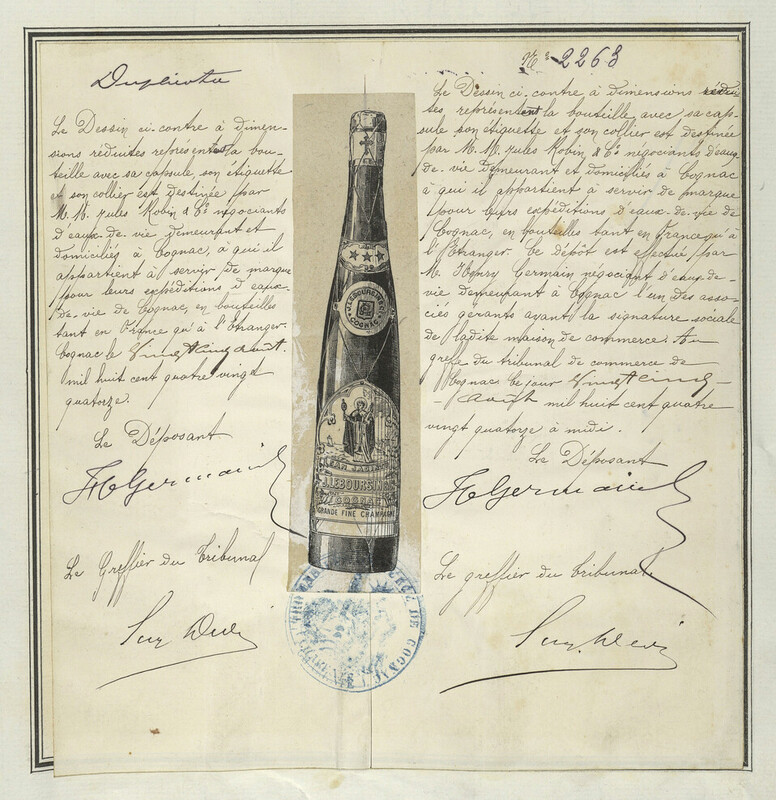 Duplicata
Le Dessin ci-contre à dimen-
sions réduites représentant la bou-
teille avec sa capsule, son étiquette
et son collier est destinée par
M.M. Jules Robin & Cº négociants
d'eaux-de-vie demeurant et
domiciliés à Cognac, à qui il
appartient à servir de marque
pour leurs expéditions d'eaux-
de-vie de Cognac, en bouteilles
tant en France qu'à l'Etranger.
Cognac le Vingt cinq août
mil huit cent quatre vingt
quatorze.
Le Déposant
H Germain
Le Greffier du Tribunal
J. LEBOURSIN & Cº
COGNAC
J. LEBOURSIN & Cº
COGNAC
GRANDE FINE CHAMPAGNE
DE COGNAC
Nº 2263
Le Dessin ci-contre à dimensions rédui
tes représentant la bouteille avec sa cap-
sule son étiquette et son collier est destinée
par M.M. Jules Robin & Cº négociants d'eaux
de-vie demeurant et domiciliés à Cognac
à qui il appartient à servir de marque
pour leurs expéditions d'eaux-de-vie de
Cognac, en bouteilles tant en France qu'à
l'Etranger. Ce dépôt est effectué par
M. Henry Germain négociant d'eaux-de
vie demeurant à Cognac l'un des asso-
ciés gérants ayant la signature sociale
de ladite maison de commerce. Au
greffe du tribunal de commerce de
Cognac ce jour Vingt cinq
août mil huit cent quatre
vingt quatorze à midi.
Le Déposant
H Germain
Le greffier du tribunal.